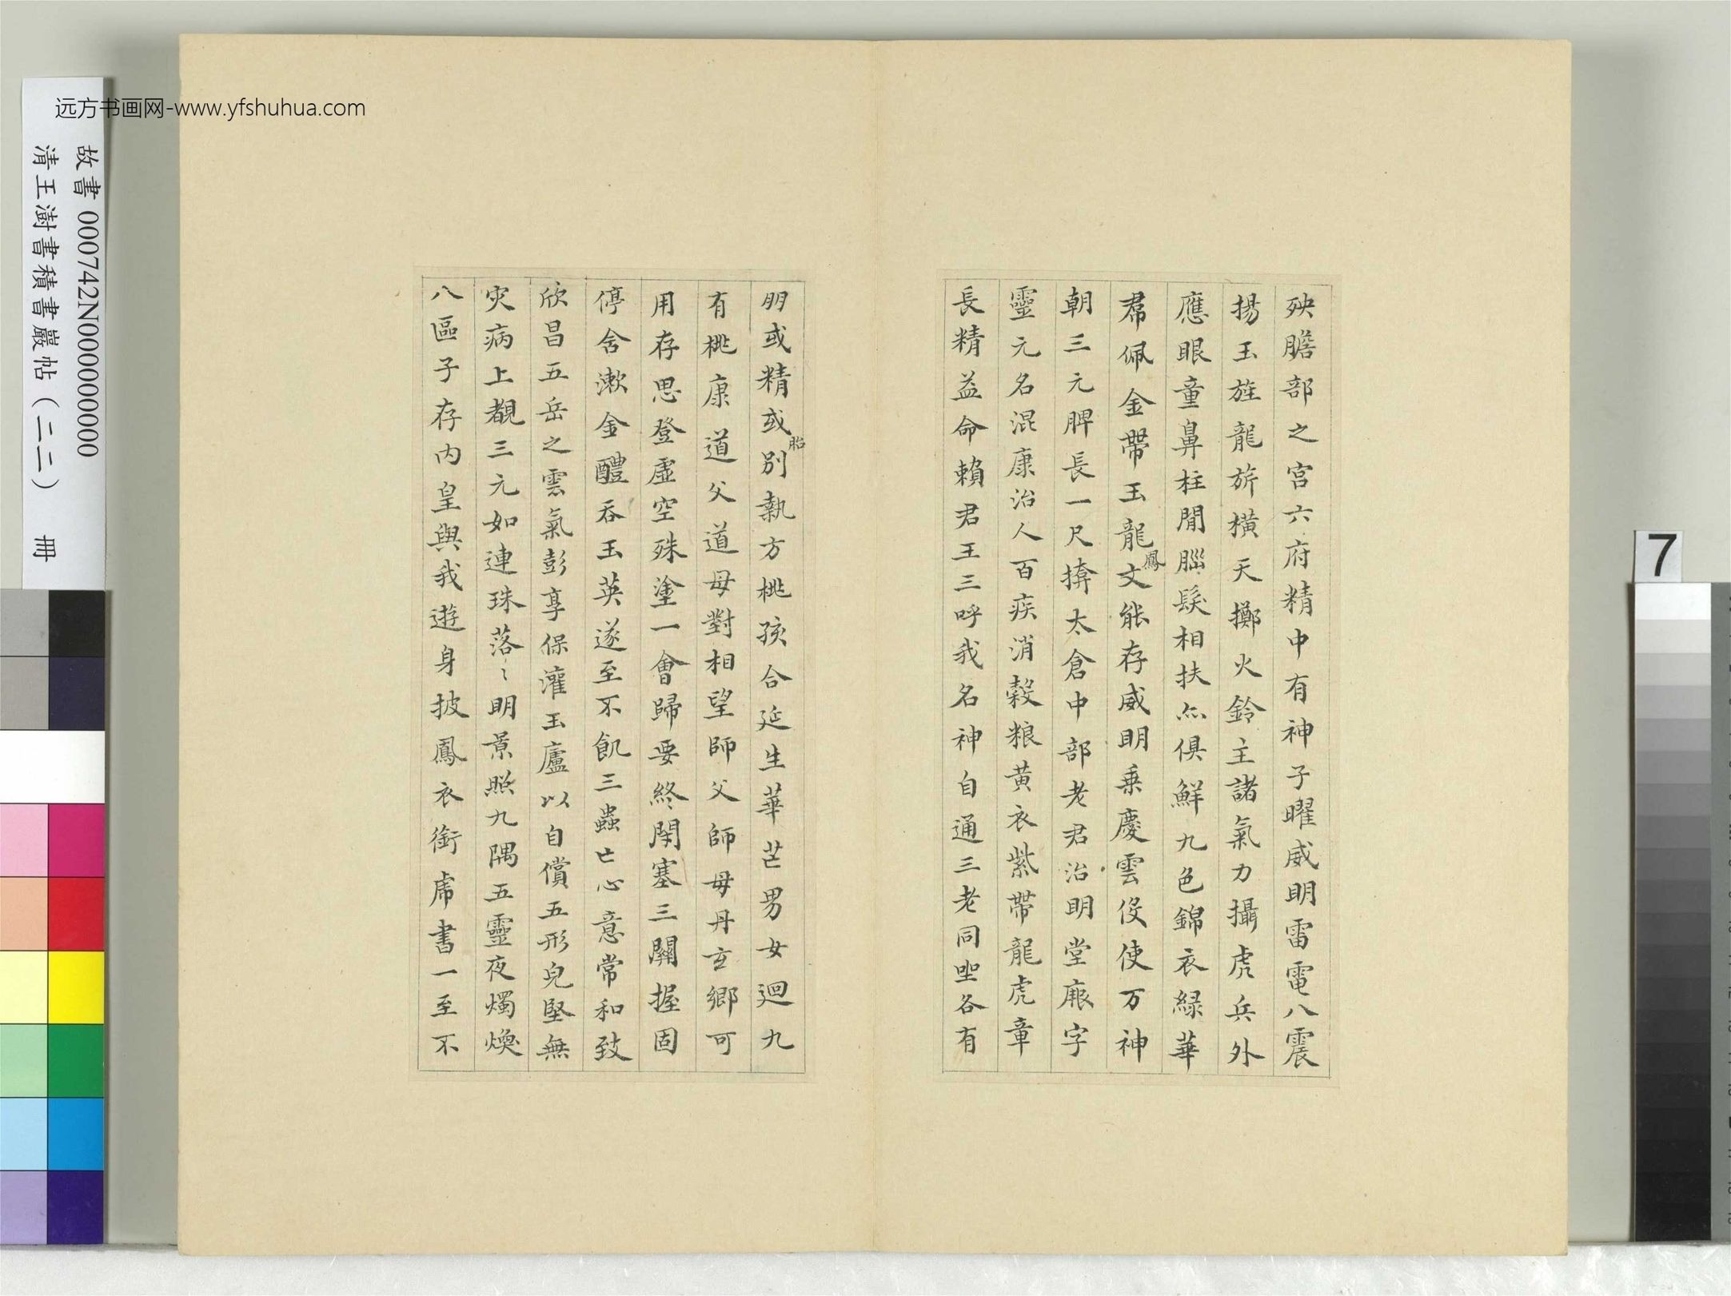 远方书画网-www.yfshuhua.com
故書 000742N000000000
清王澍書積書巖帖（二二） 冊
7
殃膽部之宮六府精中有神子曜威明雷電八震
揚玉旌龍旂橫天擲火鈴主諸氣力攝虎兵外
應眼童鼻柱間腦髮相扶亦俱鮮九色錦衣綠華
帬佩金帶玉龍文能存威明乗慶雲役使万神
鳳
朝三元脾長一尺揜太倉中部老君治明堂厫字
靈元名混康治人百疾消穀粮黄衣紫帶龍虎章
長精益命賴君王三呼我名神自通三老同坐各有
朋或精或別執方桃孩合延生華芒男女迴九
胎
有桃康道父道母對相望師父師母丹玄鄉可
用存思登虛空殊塗一會歸要終閇塞三關握固
停舍漱金醴吞玉英遂至不飢三蟲亡心意常和致
欣昌五岳之雲氣彭享保灌玉廬以自償五形皃堅無
灾病上覩三元如連珠落〻明景照九隅五靈夜燭煥
八區子存内皇與我遊身披鳳衣銜虎書一至不